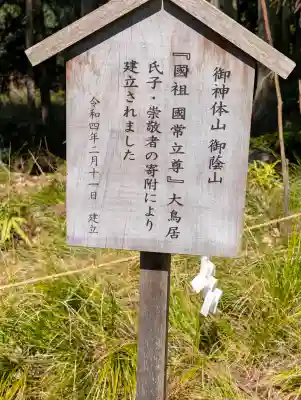 御神体山 御蔭山
『國祖 國常立尊』大鳥居
氏子・崇敬者の寄附により
建立されました
令和四年二月十一日 建立